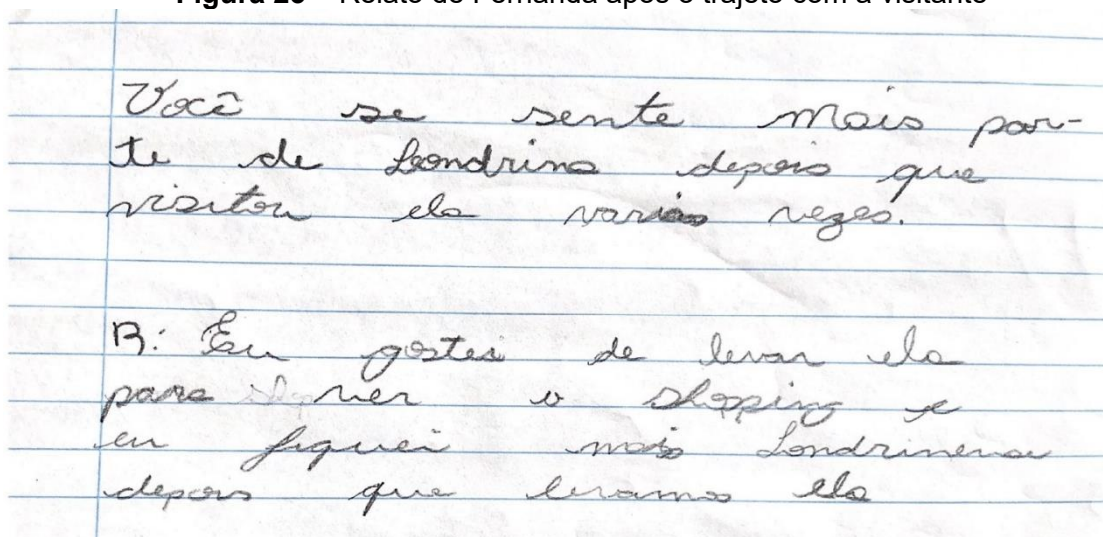 Figura 20 – Relato de Fernanda após o trajeto com a visitante
Você se sente mais par-
te de Londrina depois que
visitou ela varias vezes.
R: Eu gostei de levar ela
para ver o shopping e
eu fiquei mais Londrinense
depois que levamos ela